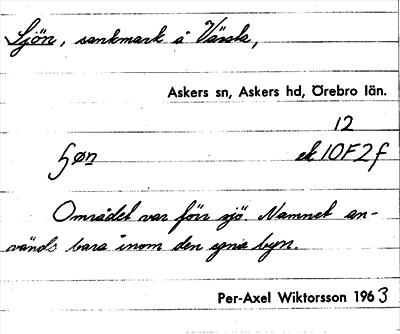 Sjön, sankmark å Värsta,
Askers sn, Askers hd, Örebro län.
12
ʃøn ek 10F2f
Området var förr sjö. Namnet an-
vänds bara inom den egna byn.
Per-Axel Wiktorsson 1963